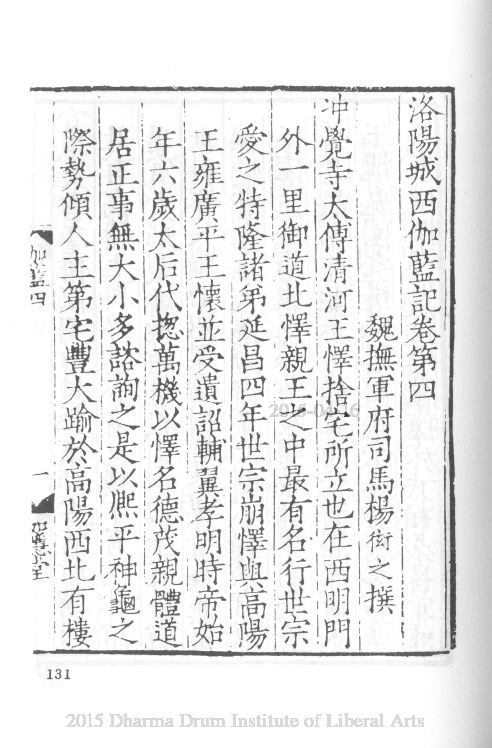 洛陽城西伽藍記卷第四
魏撫軍府司馬楊衒之撰
冲覺寺太傅清河王懌捨宅所立也在西明門
外一里御道北懌親王之中最有名行世宗
愛之特隆諸弟延昌四年世宗崩懌與高陽
王雍廣平王懷並受遺詔輔翼孝明時帝始
年六歲太后代揔萬機以懌名德茂親體道
居正事無大小多諮詢之是以熈平神龜之
際勢傾人主第宅豐大踰於高陽西北有樓
伽藍四
一
131
2015 Dharma Drum Institute of Liberal Arts